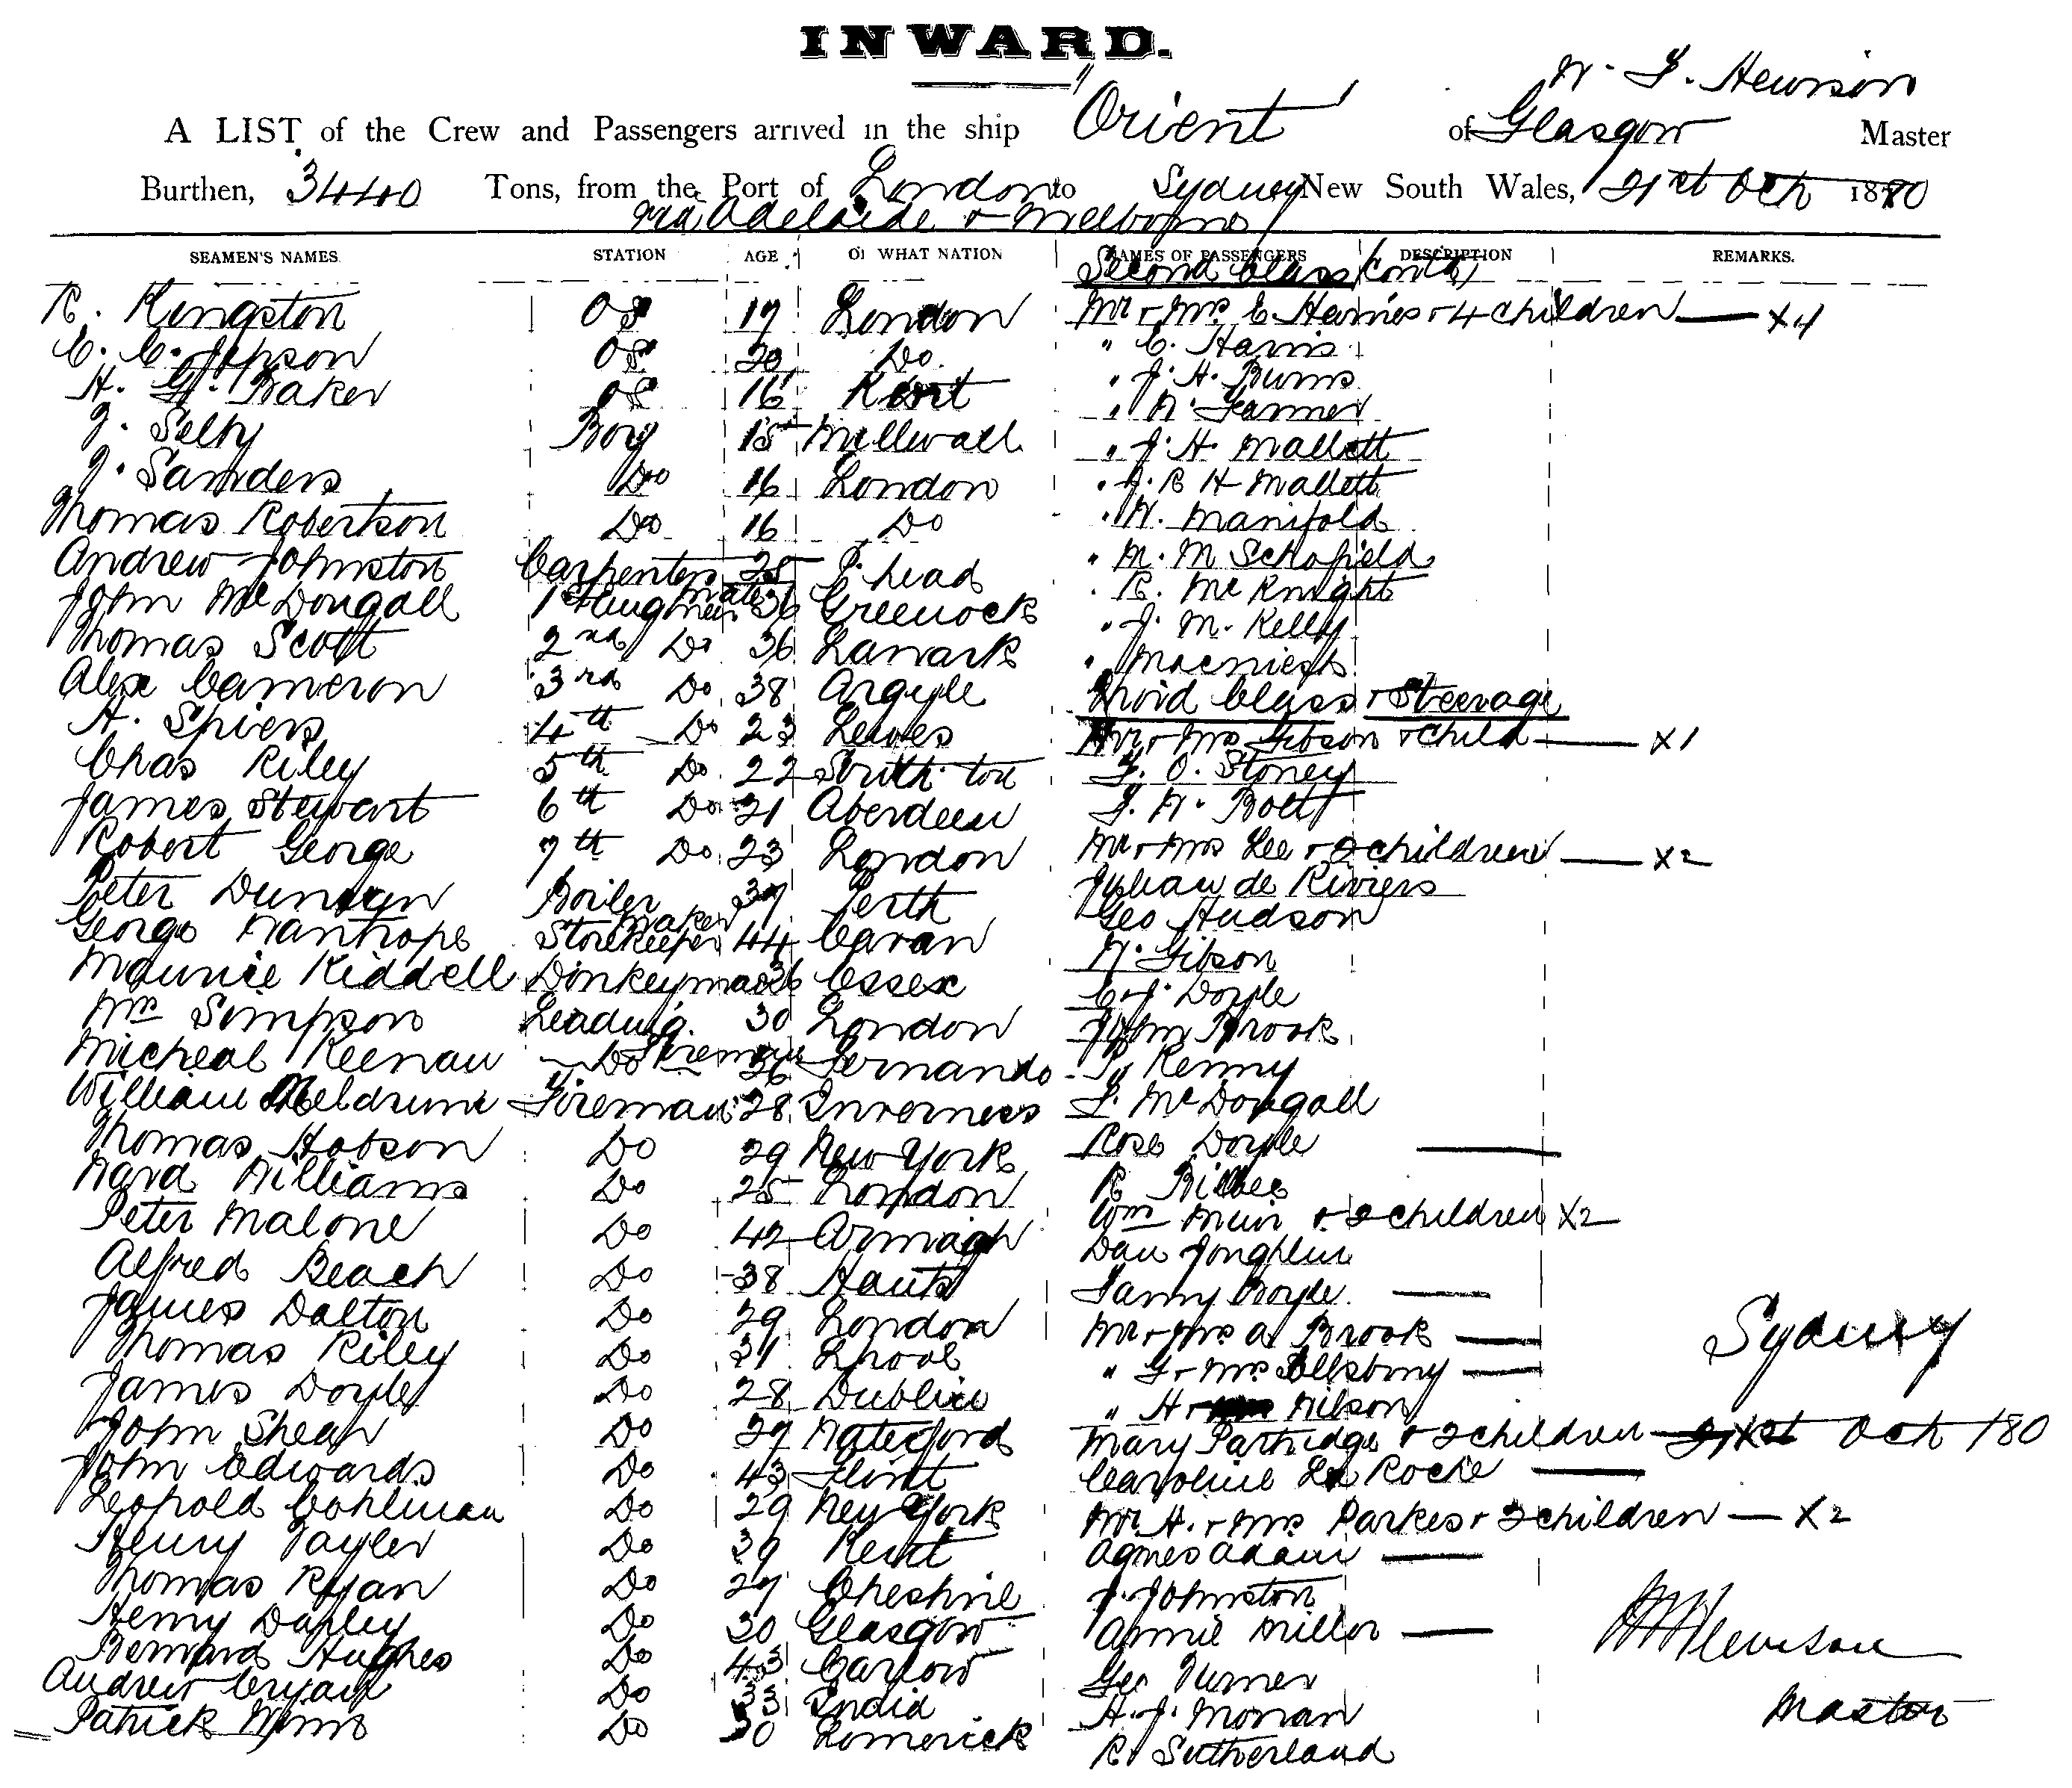 INWARD.
W. F. Hewison
A LIST of the Crew and Passengers arrived in the ship "Orient" of Glasgow Master
Burthen, 3440 Tons, from the Port of London to Sydney New South Wales, 21st Oct 1880
via Adelaide & Melborne
SEAMEN'S NAMES STATION AGE OF WHAT NATION NAMES OF PASSENGERS DESCRIPTION REMARKS.
Second Class (contd)
R. Kingston OS 19 London Mr & Mrs E Haines & 4 children — x4
C. C. Jepson OS 20 Do " C. Harris
H. G. Baker OS 16 Kent " J. H. Burns
J. Selby Boy 15 Millwall " W. Farmer
J. Sanders Do 16 London " J. H. Mallett
Thomas Robertson Do 16 Do " J. R H Mallett
Andrew Johnston Carpenters Mate 25 P. head " W. Manifold
John McDougall 1st Engineer 36 Greenock " M. M Schofield
Thomas Scott 2nd Do 36 Lanark " R. McKnight
Alex Cameron 3rd Do 38 Argyle " J. M. Kelly
H. Spiers 4th Do 23 Lewes " Macniesh
Third Class & Steerage
Chas Riley 5th Do 22 South'ton Mr & Mrs Gibson & child — x1
James Stewart 6th Do 21 Aberdeen F. O. Stoney
Robert George 7th Do 23 London F. W. Bolt
Peter Duncan Boiler Maker 37 Perth Mr & Mrs Lee & 2 children — x2
George Storekeeper 44 Cavan Julian de Riviers
Maurice Riddell Donkeyman 36 Essex Geo Hudson
Wm Simpson Leading Fireman 30 London W. Gibson
Micheal Keenan Do 36 C. J. Doyle
William Meldrum Fireman 28 Inverness John Brook
Thomas Hobson Do 29 New York P. Kenny
Ward Williams Do 25 London F. McDougall
Peter Malone Do 42 Armagh Rose Doyle —
Alfred Beach Do 38 Hants R
James Dalton Do 29 London Wm Muir & 2 children x2
Thomas Riley Do 31 Lpool Dan
James Doyle Do 28 Dublin Fanny Boyle —
John Sheah Do 29 Waterford Mr & Mrs A Brook — Sydney
John Edwards Do 43 Flint " G & Mrs —
Leopold Cohlman Do 29 New York " H Wilson
Henry Tayler Do 39 Kent Mary Partridge & 2 children — 21st Oct /80
Thomas Ryan Do 27 Cheshire Caroline La Roche —
Henry Do 30 Glasgow Mr H. & Mrs Parkes & 2 children — x2
Bernard Hughes Do 43 Carlow Agnes Adam —
Andrew Do 33 India J. Johnston
Patrick Do 30 Lomerick Annie Miller —
Geo Turner
H. J. Monan
R. Sutherland
WFHewison
Master